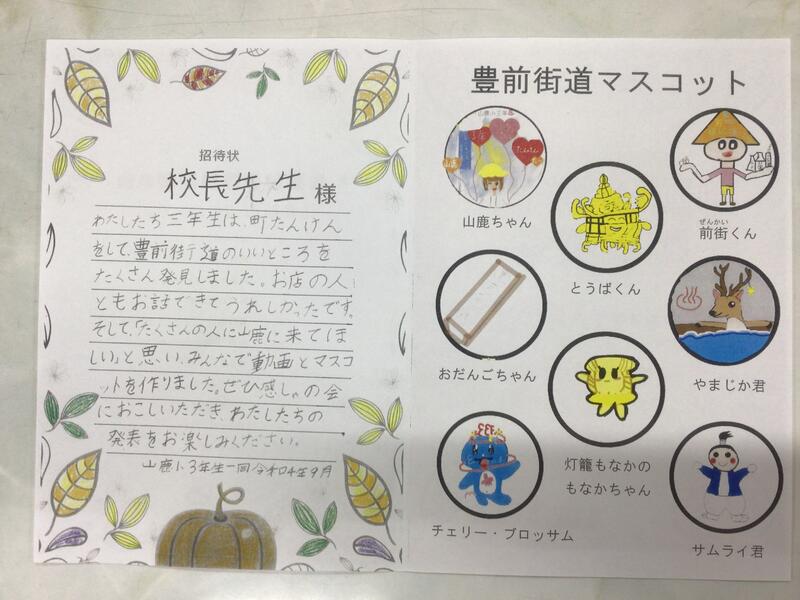 招待状
校長先生様
わたしたち三年生は、町たんけん
をして、豊前街道のいいところを
たくさん発見しました。お店の人
ともお話できてうれしかったです。
そして、「たくさんの人に山鹿に来てほ
しい」と思い、みんなで動画とマスコ
ットを作りました。ぜひ感しゃの会
におこしいただき、わたしたちの
発表をお楽しみください。
山鹿小3年生一同 令和4年9月
豊前街道マスコット
山鹿小三年
山鹿ちゃん
とうばくん
ぜんかい
前街くん
おだんごちゃん
やまじか君
133
チェリー・ブロッサム
灯籠もなかの
もなかちゃん
サムライ君